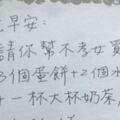 早安:
請你幫不考女買
3個蛋餅+2個水
+一杯大杯奶茶,